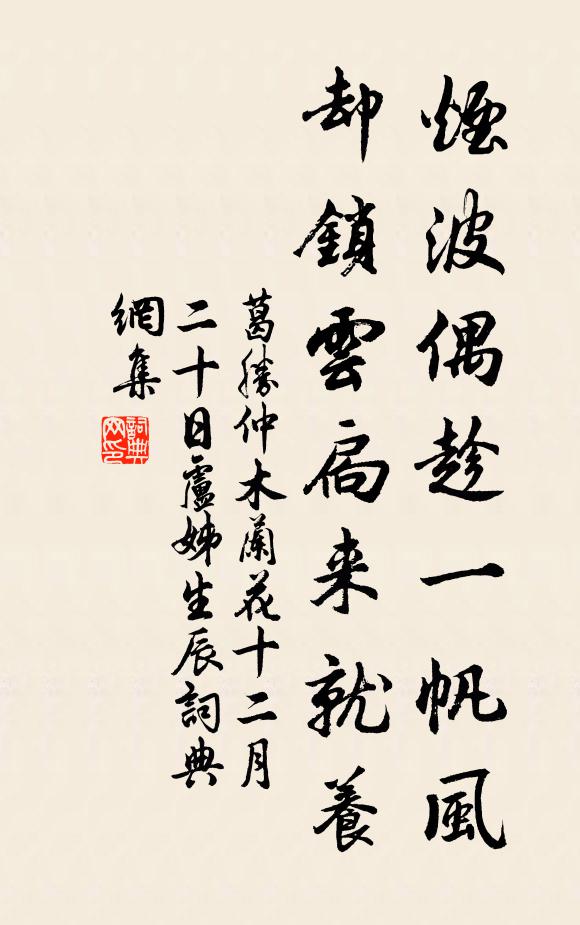 煙波偶趁一帆風
却鎖雲扄来就養
葛勝仲木蘭花十二月
二十日盧姊生辰詞典
網集
詞典
网印